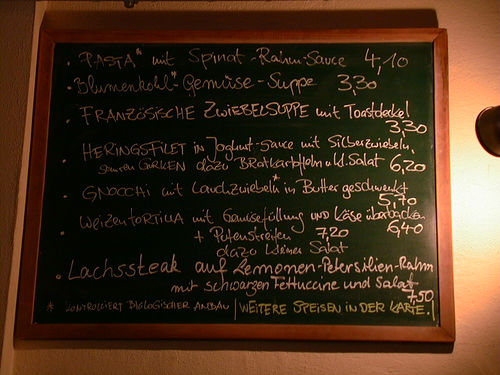 • PASTA* mit Spinat-Rahm-Sauce 4,10
• Blumenkohl*-Gemüse-Suppe 3,30
• FRANZÖSISCHE ZWIEBELSUPPE mit Toastdeckel
3,30
• HERINGSFILET in Joghurt-Sauce mit Silberzwiebeln,
sauren GURKEN dazu BRatkartoffeln u kl. Salat 6,20
• GNOCCHI mit Lauchzwiebeln* in Butter geschwenkt
5,70
• WeizenTORTILLA mit Gemüsefüllung UND Käse überbacken
6,40
+ Putenstreifen 7,20
dazu kleiner Salat
• Lachssteak auf Lemonen-Petersilien-Rahm
mit schwarzen Fettuccine und Salat
7,50
* KONTROLLIERT BIOLOGISCHER ANBAU | WEITERE SPEISEN IN DER KARTE.